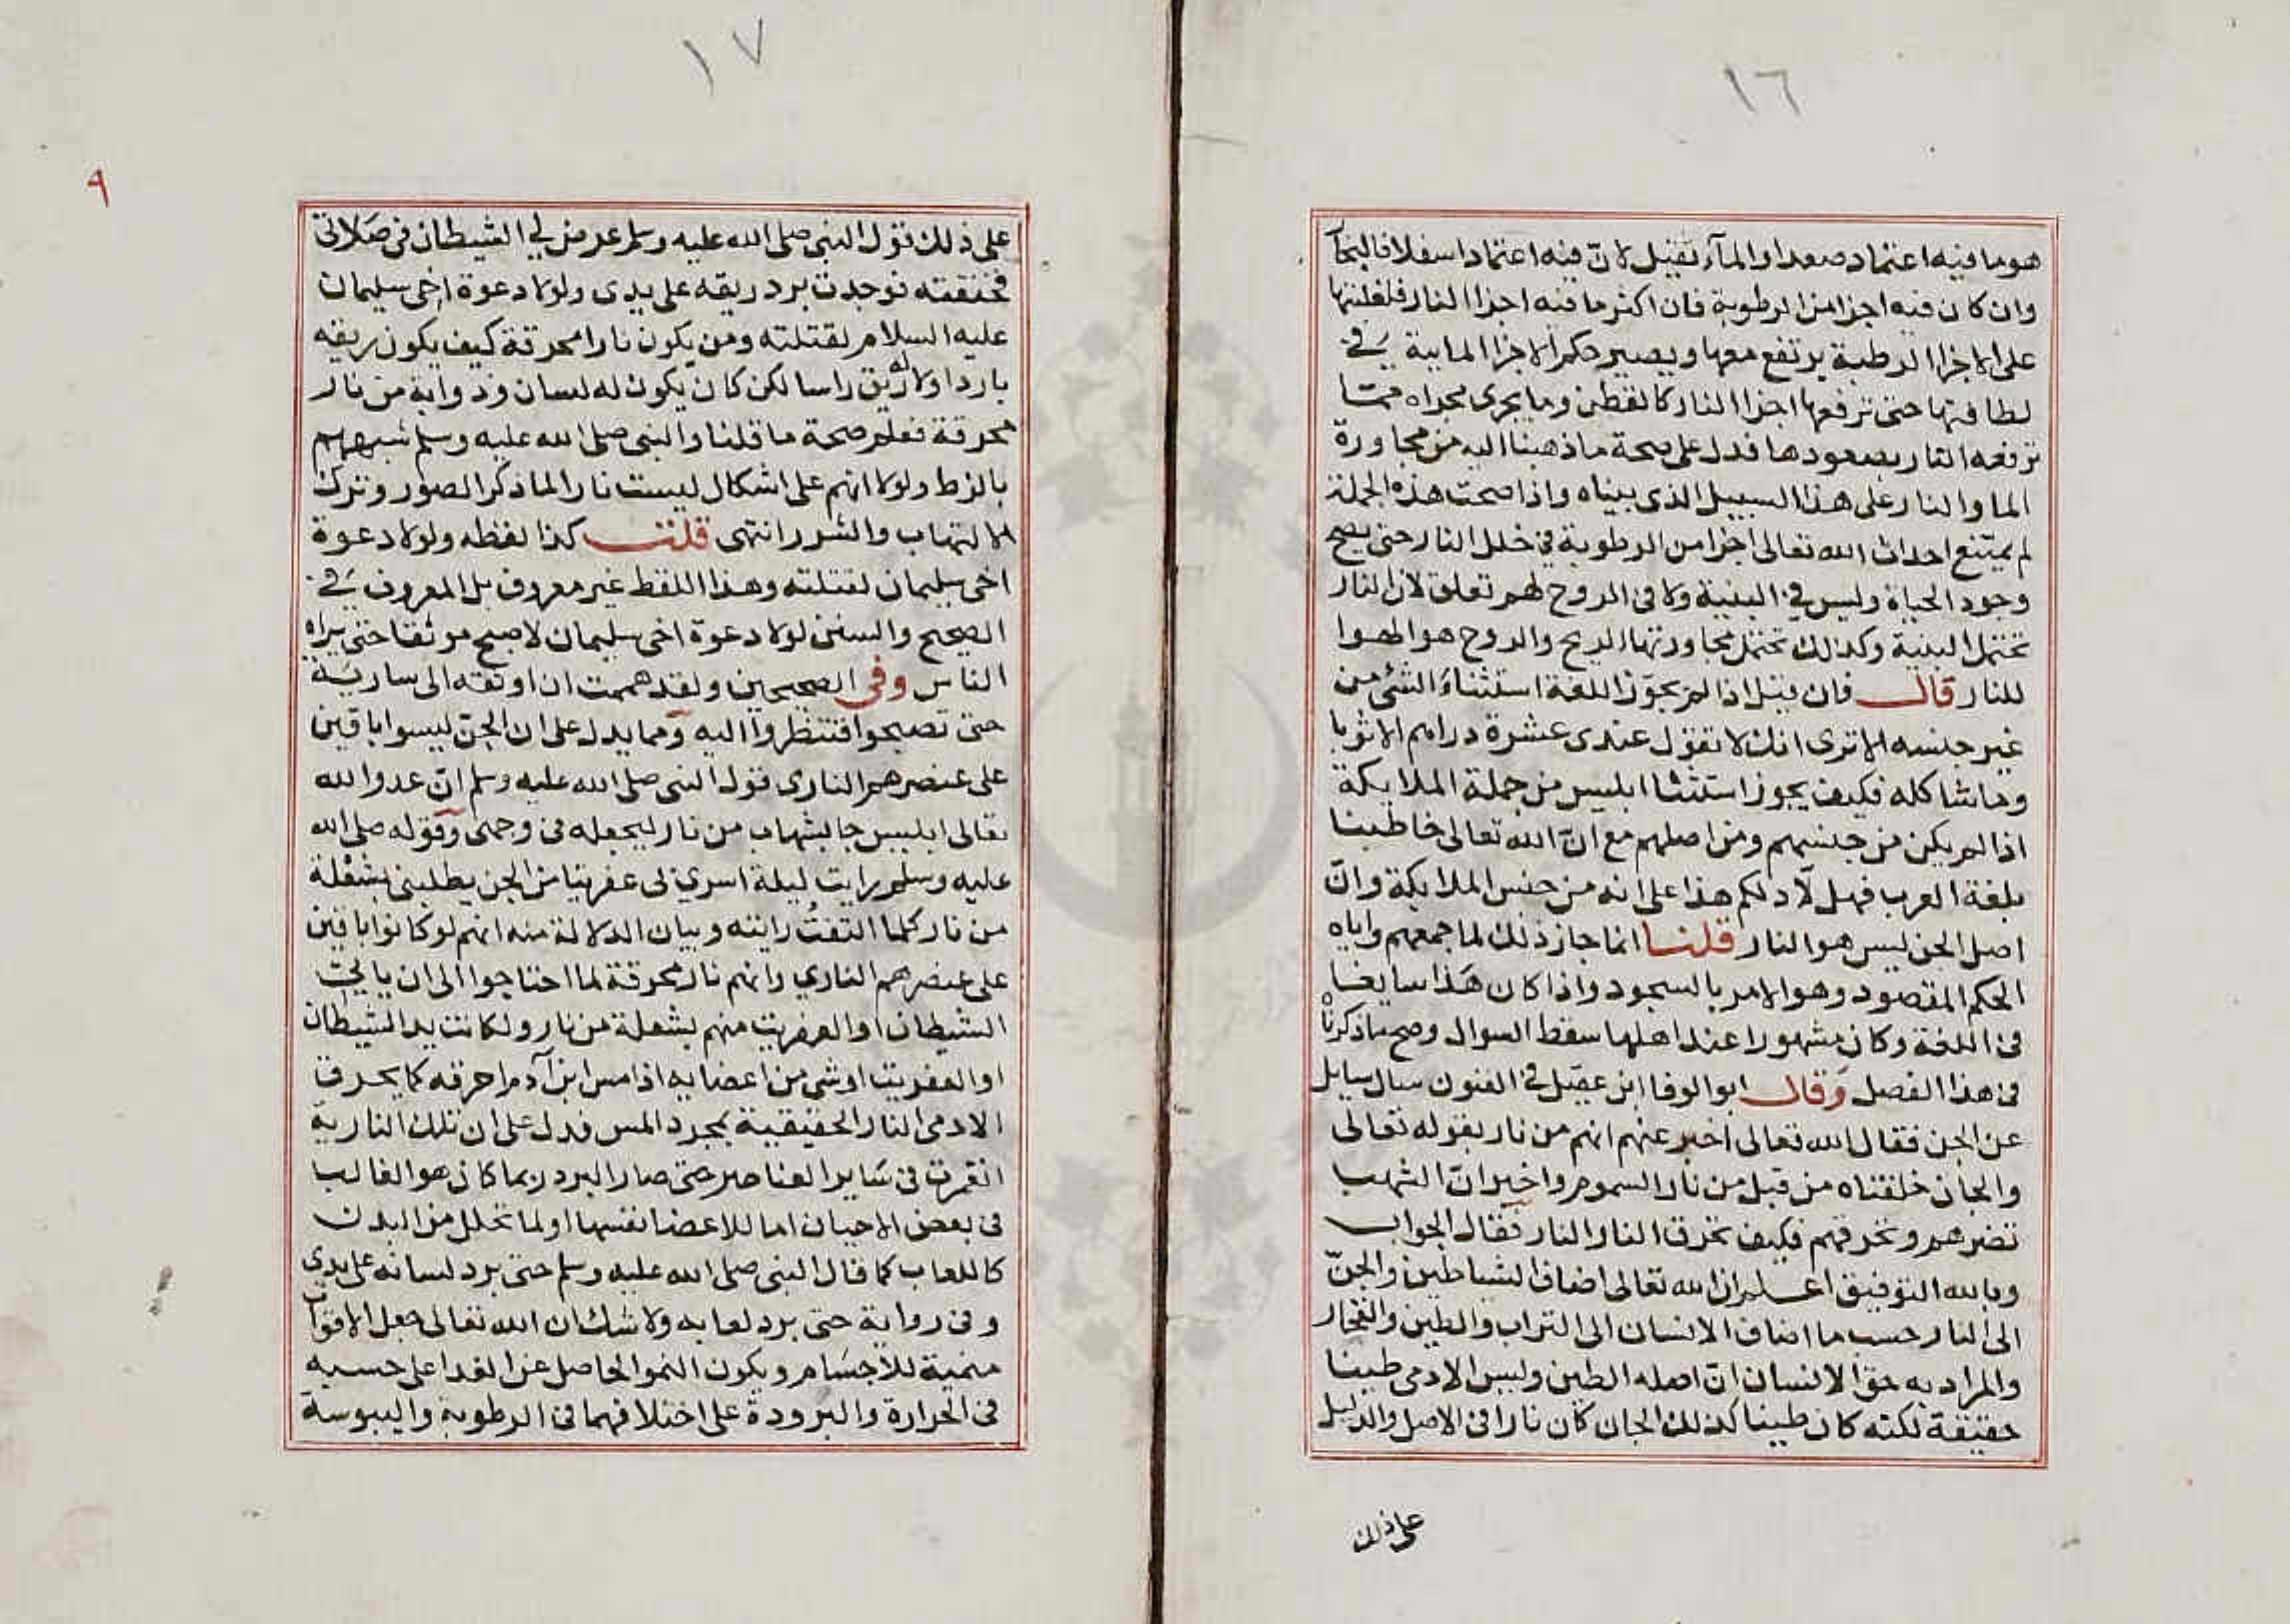 ١٦
هو ما فيه اعتماد صعدا والمآء ثقيل لانّ فيه اعتمادا سفلا فالبخآر
وان كان فيه اجزا من الرطوبة فان اكثر ما فيه اجزا النار فلغلبتها
على الاجزا الرطبة يرتفع معها ويصير حكم الاجزا المايية في
لطافتها حتى ترفعها اجزا النار كالقطن وما يجرى مجراه مما
ترفعه النار بصعودها فدل على صحة ما ذهبنا اليه من مجاورة
الما والنار على هذا السبيل الذى بيناه واذا صحت هذه الجملة
لم يمتنع احداث الله تعالى اجزا من الرطوبة في خلل النار حتى يصح
وجود الحياة وليس في البنية ولا فى الروح لهم تعلق لان النار
تحتمل البنية وكذلك تحتمل مجاورتها الريح والروح هو الهوا
للنار قال فان قيل اذا لم يجوّز اللغة استثناء الشئ من
غير جنسه الا ترى انك لا تقول عندى عشرة دراهم الا ثوبا
وما شاكله فكيف يجوز استثنا ابليس من جملة الملايكة
اذا لم يكن من جنسهم ومن اصلهم مع انّ الله تعالى خاطبنا
بلغة العرب فهل لّا دلكم هذا على انه من جنس الملايكة وانّ
اصل الجن ليس هو النار قلنا انما جاز ذلك لما جمعهم واياه
الحكم المقصود وهو الامر بالسجود واذا كان هذا سايغا
فى اللغة وكان مشهورا عند اهلها سقط السوال وصح ما ذكرناه
فى هذا الفصل وقال ابو الوفا ابن عقيل في الفنون سال سايل
عن الجن فقال الله تعالى اخبر عنهم انهم من نار بقوله تعالى
والجان خلقناه من قبل من نار السموم واخبر انّ الشهب
تضرهم وتحرقهم فكيف تحرق النار النار فقال الجواب
وبالله التوفيق اعلم ان الله تعالى اضاف الشياطين والجنّ
الى النار حسب ما اضاف الانسان الى التراب والطين والفخار
والمراد به حق الانسان انّ اصله الطين وليس الادمى طينا
حقيقة لكنه كان طينا كذلك الجان كان نارا فى الاصل والدليل
على ذلك
١٧
٩
على ذلك قول النبى صلى الله عليه وسلم عرض لي الشيطان فى صلاتى
فخنقته فوجدت برد ريقه على يدى ولولا دعوة اخى سليمان
عليه السلام لقتلته ومن يكون نارا محرقة كيف يكون ريقه
باردا ولا له ريق راسا لكن كان يكون له لسان وذوابة من نار
محرقة فعلم صحة ما قلنا والنبى صلى الله عليه وسلم شبههم
بالزط ولولا انهم على اشكال ليست نارا لما ذكر الصور وترك
الالتهاب والشرر انتهى قلت كذا لفظه ولولا دعوة
اخى سليمان لقتلته وهذا اللفظ غير معروف بل المعروف في
الصحيح والسنن لولا دعوة اخى سليمان لاصبح موثقا حتى يراه
الناس وفى الصحيحين ولقد هممت ان اوثقه الى سارية
حتى تصبحوا فتنظروا اليه ومما يدل على ان الجنّ ليسوا باقين
على عنصرهم النارى قول النبى صلى الله عليه وسلم انّ عدو الله
تعالى ابليس جا بشهاب من نار ليجعله فى وجهى وقوله صلى الله
عليه وسلم رايت ليلة اسرى لى عفريتا من الجن يطلبنى بشعلة
من نار كلما التفتُّ رايته وبيان الدلالة منه انهم لو كانوا باقين
على عنصرهم الناري وانهم نار محرقة لما احتاجوا الى ان ياتي
الشيطان او العفريت منهم بشعلة من نار ولكانت يد الشيطان
او العفريت او شى من اعضايه اذا مس ابن آدم احرقه كما يحرق
الادمى النار الحقيقية بمجرد المس فدل على ان تلك النارية
انغمرت فى ساير العناصر حتى صار البرد ربما كان هو الغالب
فى بعض الاحيان اما للاعضا نفسها او لما تحلل من البدن
كاللعاب كما قال النبى صلى الله عليه وسلم حتى برد لسانه على يدى
وفى رواية حتى برد لعابه ولا شك ان الله تعالى جعل الاقوات
منمية للاجسام ويكون النمو الحاصل عن الغدا على حسبه
فى الحرارة والبرودة على اختلافهما فى الرطوبة واليبوسة